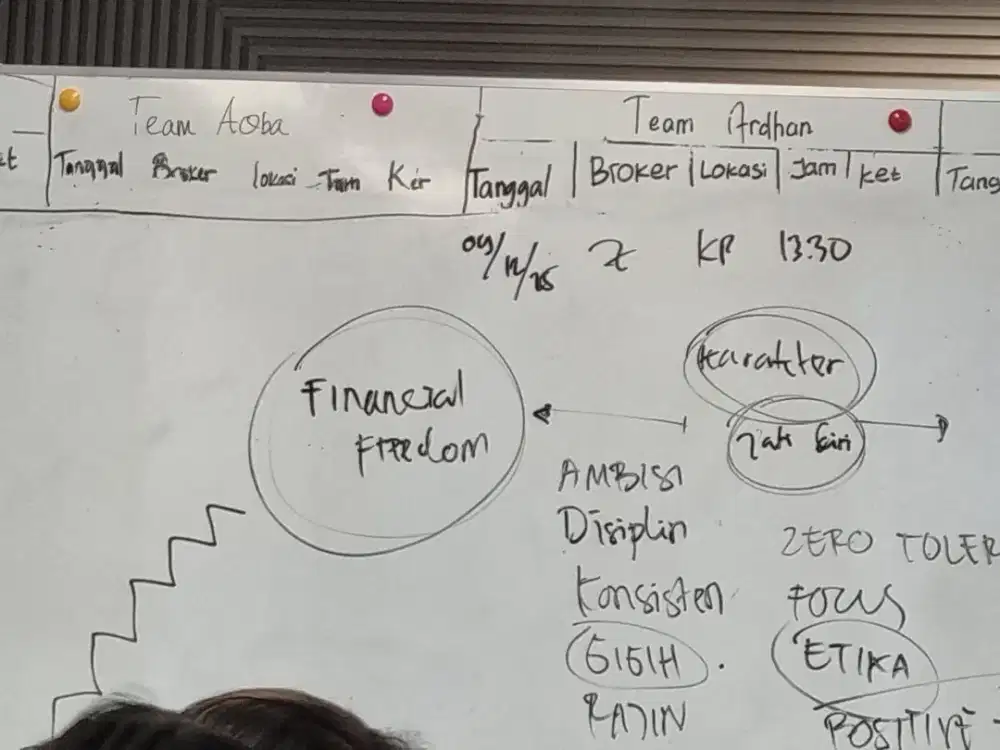 Team Aqba
Team Ardhan
et
Tanggal Broker lokasi Jam Ket
Tanggal Broker Lokasi Jam ket
Tang
09/12/25 Z KP 13.30
Karakter
Jati Diri
Financial
Freedom
AMBISI
Disiplin
Konsisten
GIGIH
RAJIN
ZERO TOLER
FOCUS
ETIKA
POSITIVE